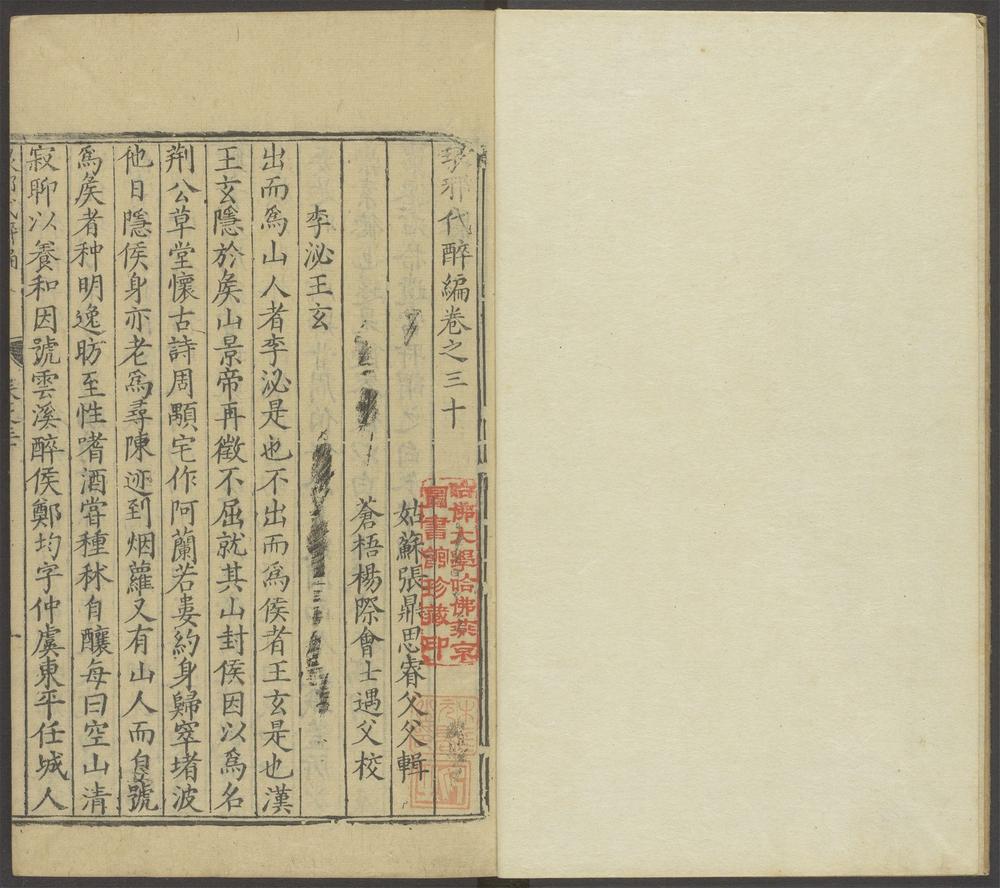 琅邪代醉編卷之三十
姑蘇張鼎思睿父父輯
蒼梧楊際會士遇父校
李泌王玄
出而爲山人者李泌是也不出而爲侯者王玄是也漢
王玄隱於矦山景帝再徵不屈就其山封侯因以爲名
荆公草堂懷古詩周顒宅作阿蘭若婁約身歸窣堵波
他日隱侯身亦老爲尋陳迹到烟蘿又有山人而自號
爲矦者种明逸昉至性嗜酒嘗種秫自釀每曰空山清
寂聊以養和因號雲溪醉侯鄭均字仲虞東平任城人
哈佛大學哈佛燕京
圖書館珍藏印